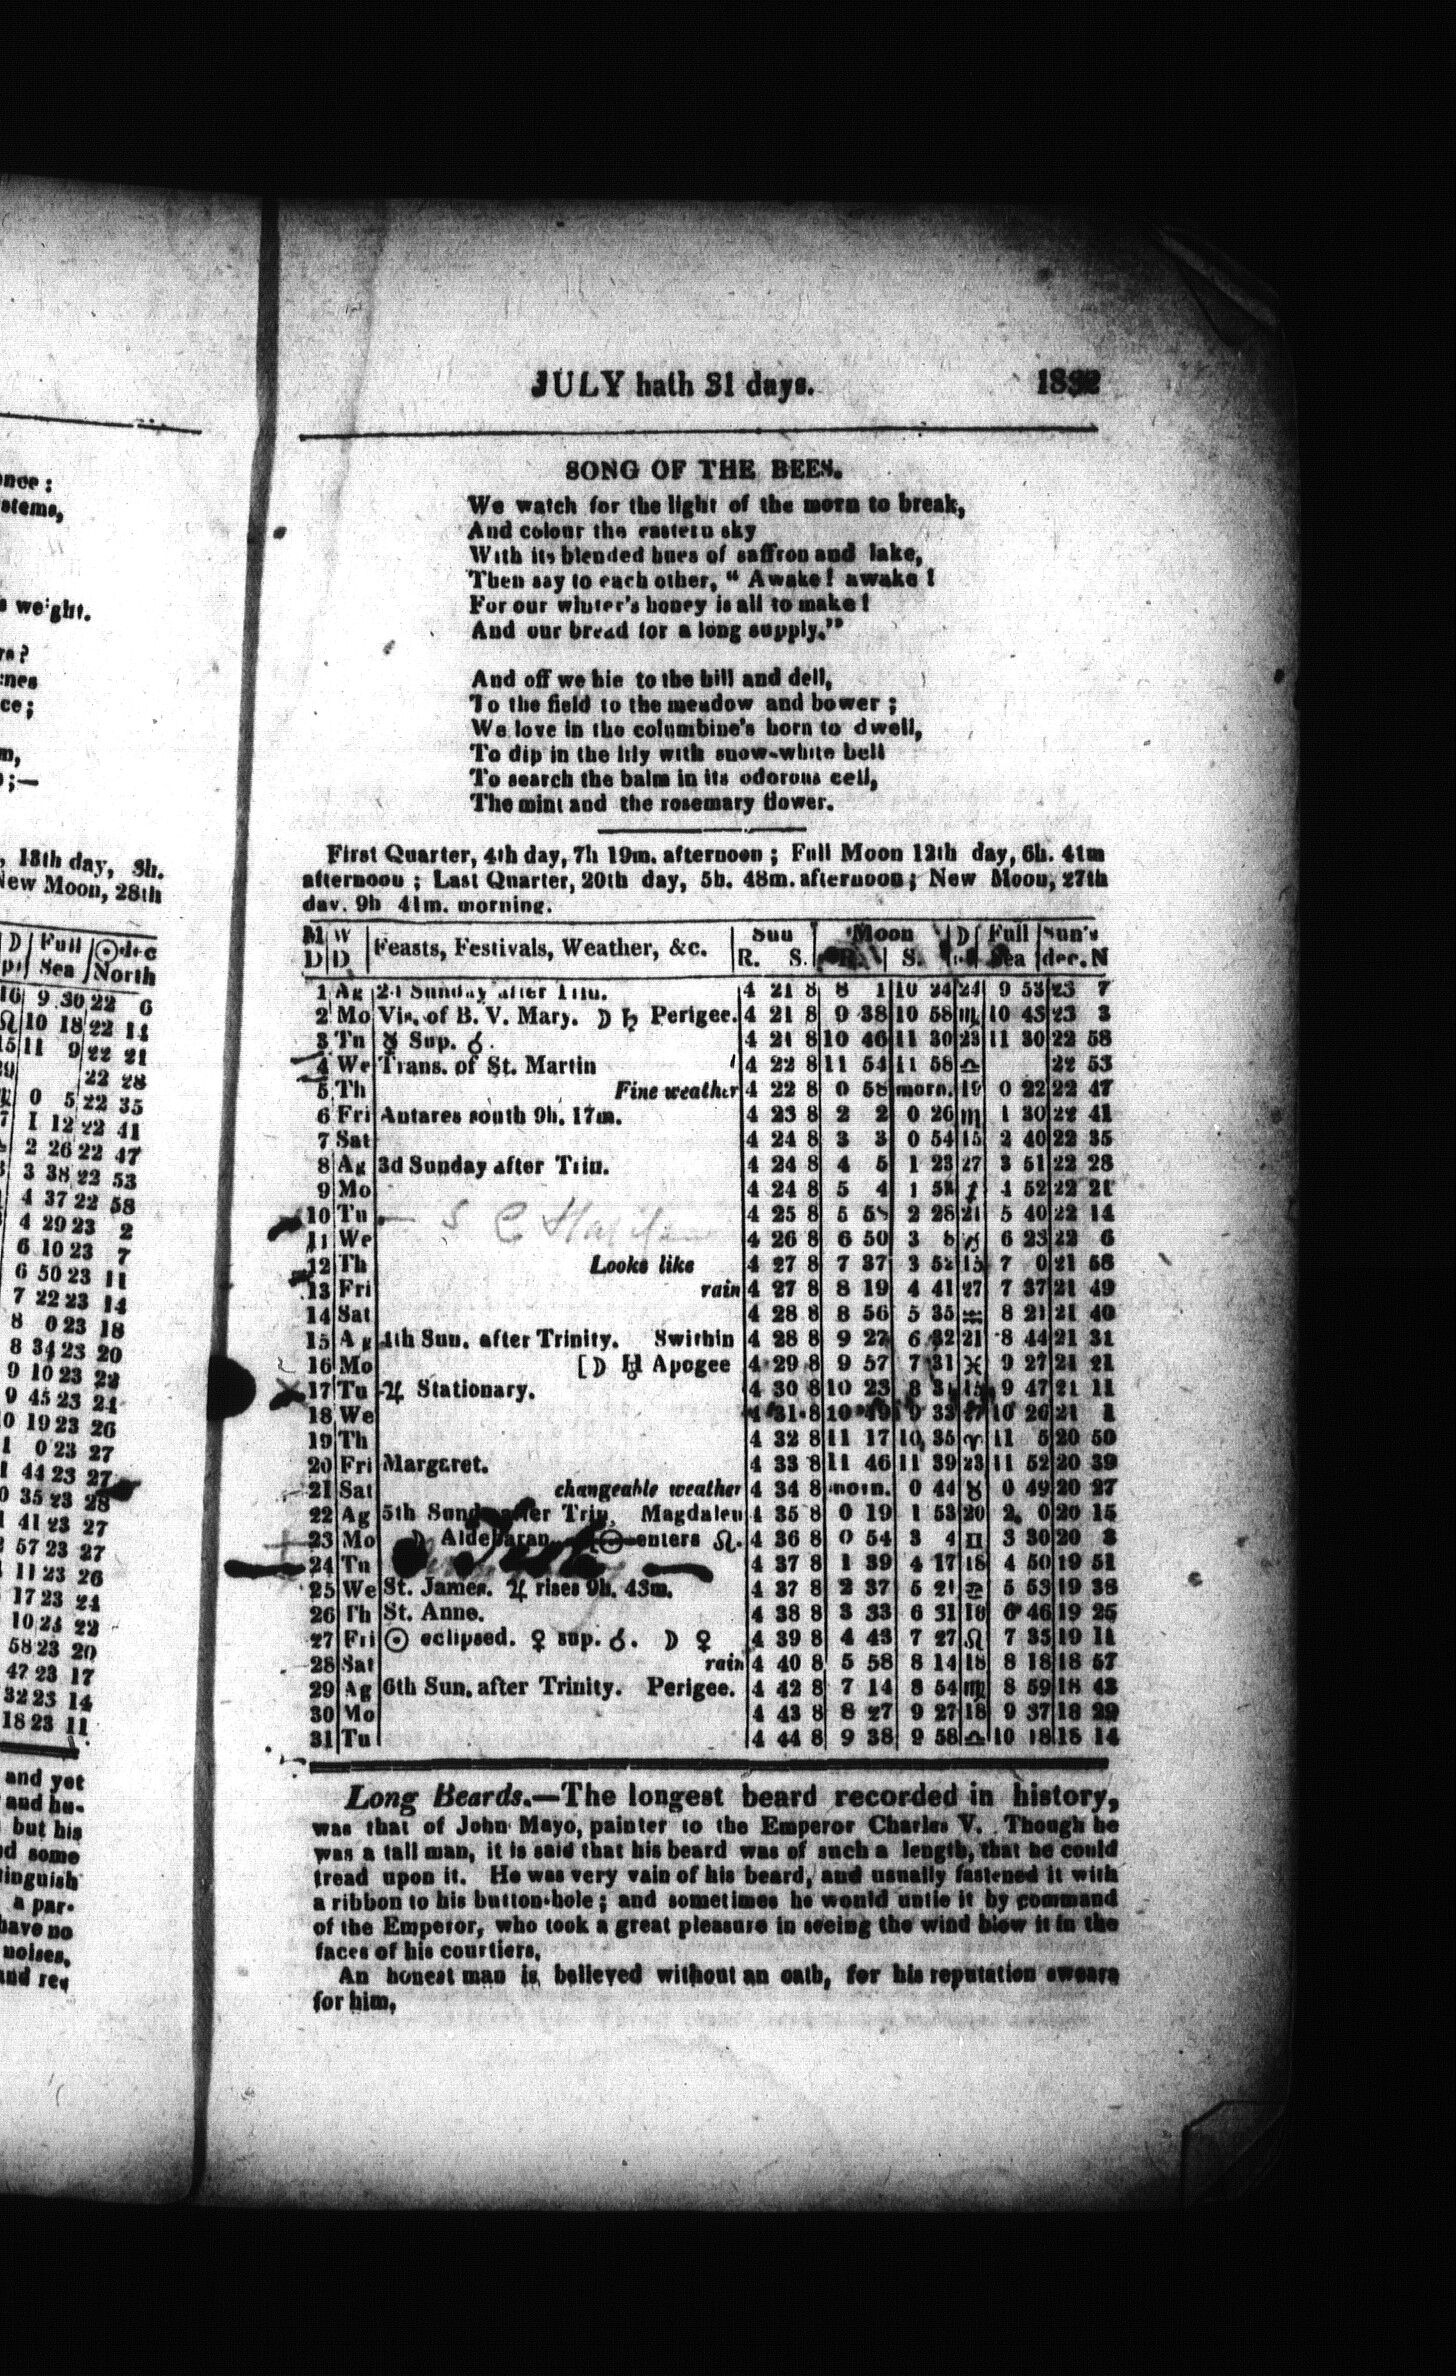 JULY hath 31 days. 1832
SONG OF THE BEES.
We watch for the light of the morn to break,
And colour the eastern sky
With its blended hues of saffron and lake,
Then say to each other, “ Awake! awake !
For our winter's honey is all to make !
And our bread for a long supply.”
And off we hie to the hill and dell,
To the field to the meadow and bower ;
We love in the columbine's horn to dwell,
To dip in the lily with snow-white bell
To search the balm in its odorous cell,
The mint and the rosemary flower.
First Quarter, 4th day, 7h 19m. afternoon ; Full Moon 12th day, 6h. 41m
afternoon ; Last Quarter, 20th day, 5h. 48m. afternoon ; New Moon, 27th
day. 9h 41m. morning.
M D | W D | Feasts, Festivals, Weather, &c. | Sun R. S. | Moon R. S. | Full Sea | Sun's dec. N
1 Ag 2d Sunday after Trin. 4 21 8 8 1 10 24 24 9 53 23 7
2 Mo Vis. of B. V. Mary. ☽ ♄ Perigee. 4 21 8 9 38 10 58 ♍ 10 45 23 3
3 Tu ☿ Sup. ☌. 4 21 8 10 46 11 30 23 11 30 22 58
4 We Trans. of St. Martin 4 22 8 11 54 11 58 ♎ 22 53
5 Th Fine weather 4 22 8 0 58 morn. 19 0 22 22 47
6 Fri Antares south 9h. 17m. 4 23 8 2 2 0 26 ♏ 1 30 22 41
7 Sat 4 24 8 3 3 0 54 15 2 40 22 35
8 Ag 3d Sunday after Trin. 4 24 8 4 5 1 23 27 3 51 22 28
9 Mo 4 24 8 5 4 1 58 ♐ 4 52 22 21
10 Tu 4 25 8 5 58 2 28 21 5 40 22 14
11 We 4 26 8 6 50 3 8 ♑ 6 23 22 6
12 Th Looks like 4 27 8 7 37 3 52 15 7 0 21 58
13 Fri rain 4 27 8 8 19 4 41 27 7 37 21 49
14 Sat 4 28 8 8 56 5 35 ♒ 8 21 21 40
15 Ag 4th Sun. after Trinity. Swithin 4 28 8 9 27 6 32 21 8 44 21 31
16 Mo [☽ ♅ Apogee 4 29 8 9 57 7 31 ♓ 9 27 21 21
17 Tu ♃ Stationary. 4 30 8 10 23 8 31 15 9 47 21 11
18 We 4 31 8 10 49 9 33 27 10 26 21 1
19 Th 4 32 8 11 17 10 35 ♈ 11 5 20 50
20 Fri Margaret. 4 33 8 11 46 11 39 23 11 52 20 39
21 Sat changeable weather 4 34 8 morn. 0 44 ♉ 0 49 20 27
22 Ag 5th Sunday after Trin. Magdalen 4 35 8 0 19 1 53 20 2 0 20 15
23 Mo ☽ Aldebaran ☉ enters ♌. 4 36 8 0 54 3 4 ♊ 3 30 20 3
24 Tu 4 37 8 1 39 4 17 18 4 50 19 51
25 We St. James. ♃ rises 9h. 43m. 4 37 8 2 37 5 21 ♋ 5 53 19 38
26 Th St. Anne. 4 38 8 3 33 6 31 18 6 46 19 25
27 Fri ☉ eclipsed. ♀ sup. ☌. ☽ ♀ 4 39 8 4 43 7 27 ♌ 7 35 19 11
28 Sat rain 4 40 8 5 58 8 14 18 8 18 18 57
29 Ag 6th Sun. after Trinity. Perigee. 4 42 8 7 14 8 54 ♍ 8 59 18 43
30 Mo 4 43 8 8 27 9 27 18 9 37 18 29
31 Tu 4 44 8 9 38 9 58 ♎ 10 18 18 14
Long Beards.—The longest beard recorded in history,
was that of John Mayo, painter to the Emperor Charles V. Though he
was a tall man, it is said that his beard was of such a length, that he could
tread upon it. He was very vain of his beard, and usually fastened it with
a ribbon to his button-hole ; and sometimes he would untie it by command
of the Emperor, who took a great pleasure in seeing the wind blow it in the
faces of his courtiers.
An honest man is believed without an oath, for his reputation swears
for him.